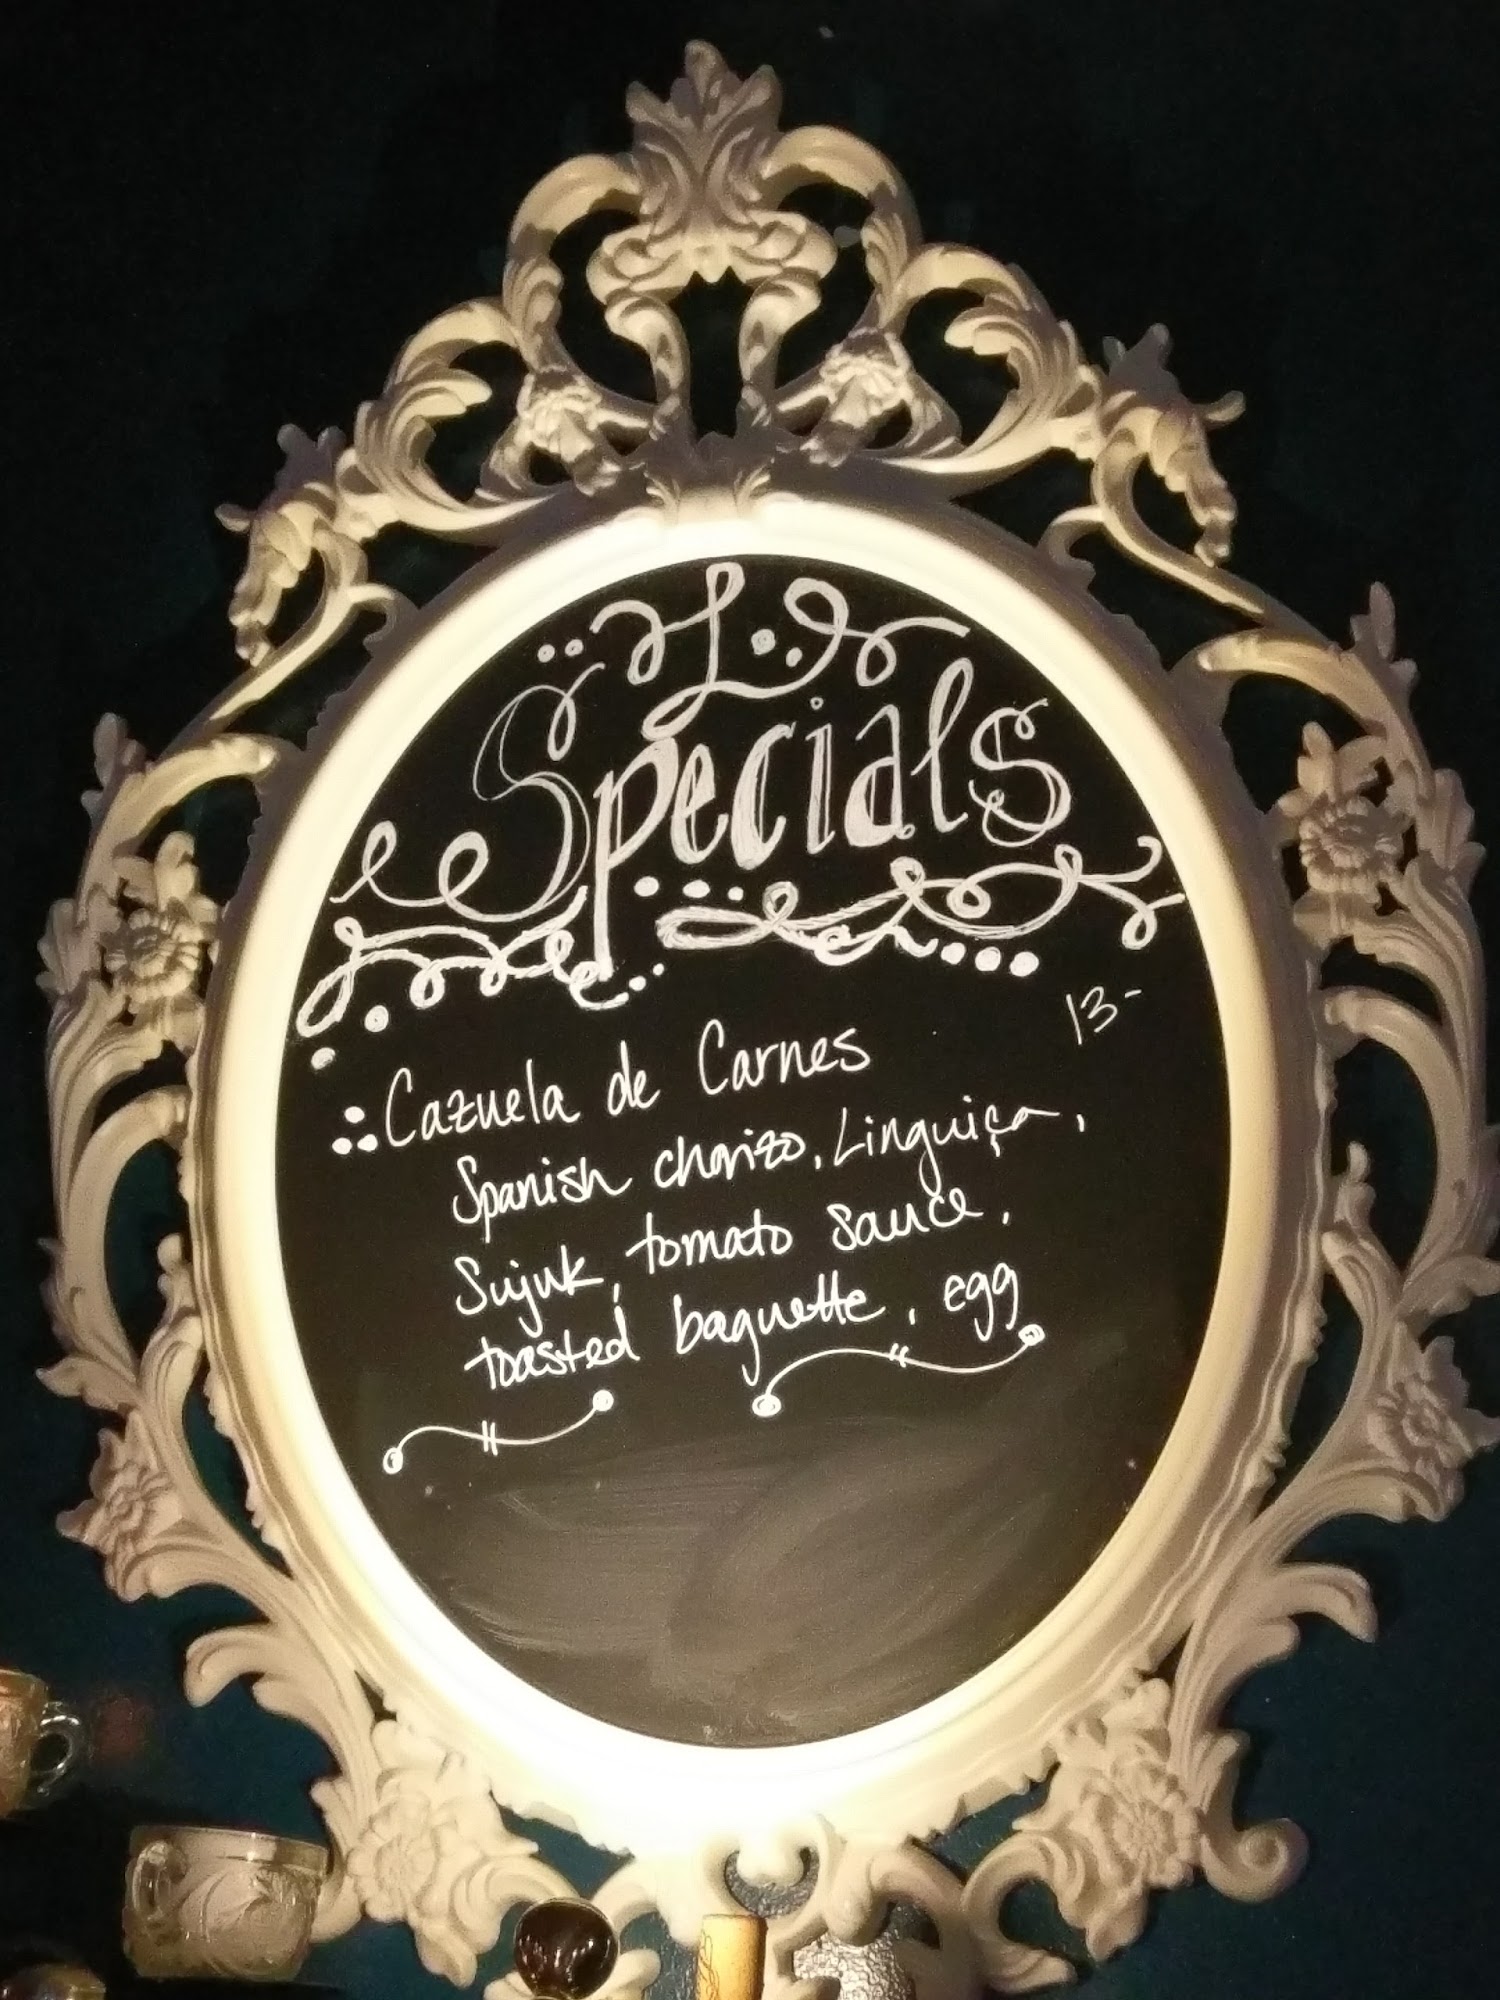 Specials
13-
Cazuela de Carnes
Spanish chorizo, Linguiça,
Sujuk, tomato sauce,
toasted baguette, egg